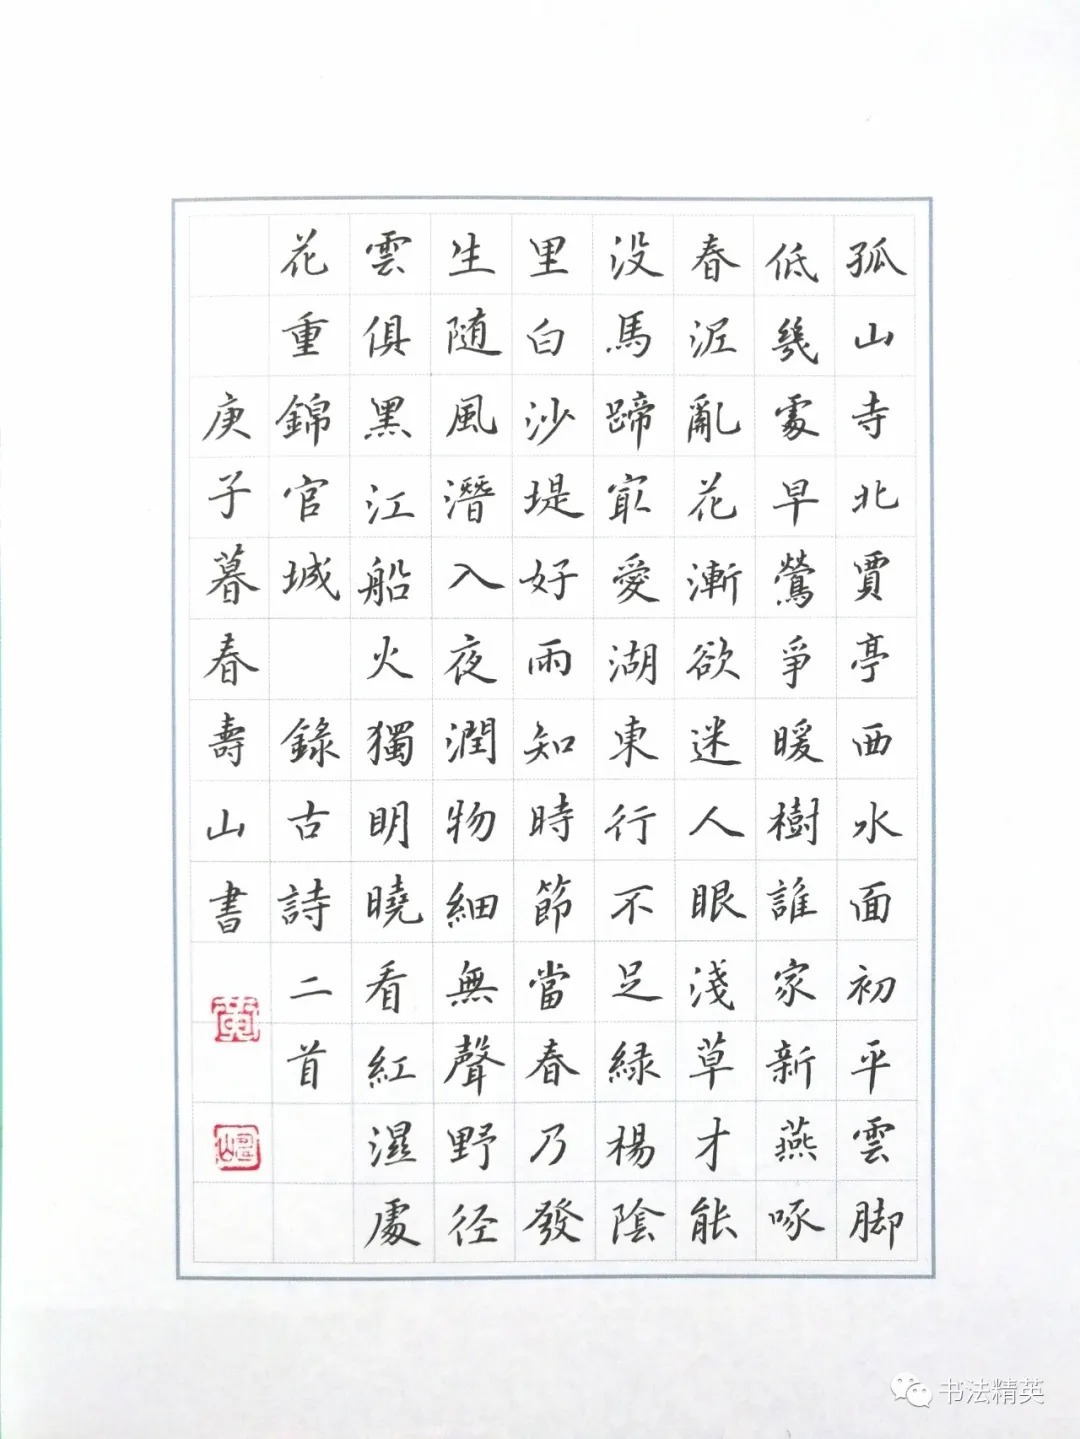 孤山寺北賈亭西水面初平雲脚
低幾處早鶯爭暖樹誰家新燕啄
春泥亂花漸欲迷人眼淺草才能
没馬蹄最愛湖東行不足緑楊陰
里白沙堤好雨知時節當春乃發
生随風潛入夜潤物細無聲野径
雲俱黑江船火獨明曉看紅濕處
花重錦官城 錄古詩二首
庚子暮春壽山書
书法精英